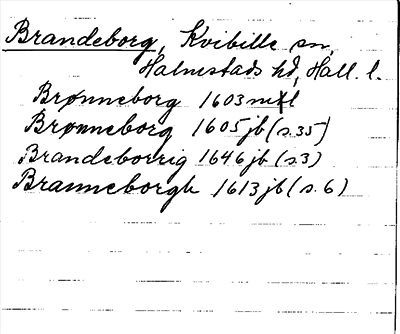 Brandeborg, Kvibille sn,
Halmstads hd, Hall. l.
Brønneborg 1603 mtl
Brønneborg 1605 jb (s.35)
Brandeborrig 1646 jb (s.3)
Branneborgh 1613 jb (s.6)